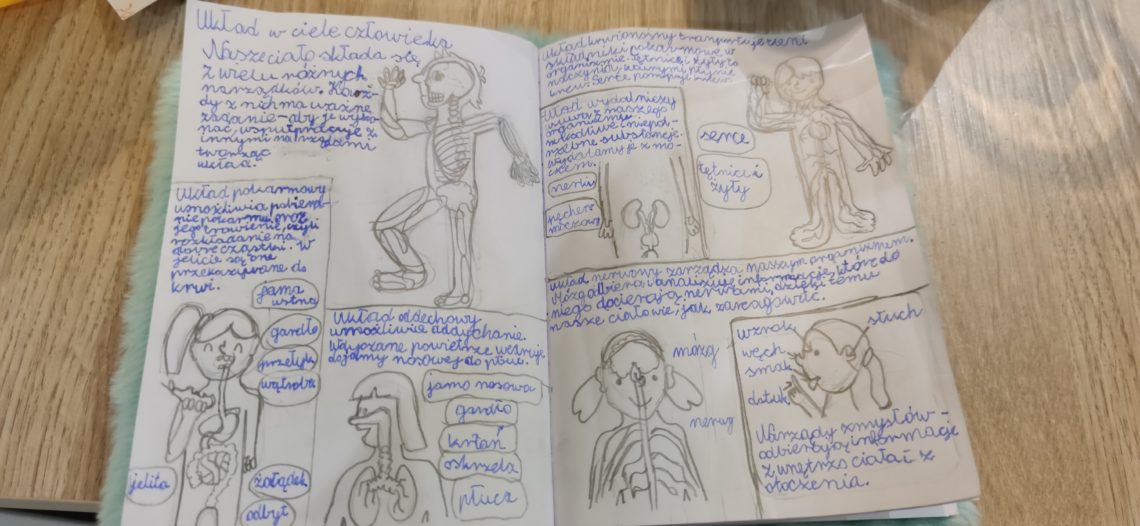 Układ w ciele człowieka
Nasze ciało składa się
z wielu różnych
narządków. Każ-
dy z nich ma ważne
zadanie - aby je wyko-
nać, współpracuje z
innymi narządami
tworząc
układ.
Układ pokarmowy
umożliwia pobiera-
nie pokarmu, oraz
jego trawienie, czyli
rozkładanie na
drobne cząstki. W
jelicie są one
przekazywane do
krwi.
jama
ustna
gardło
przełyk
wątroba
jelita
żołądek
odbyt
Układ oddechowy
umożliwia oddychanie.
powietrze
do jamy nosowej do płuc.
jama nosowa
gardło
krtań
oskrzela
płuca
Układ krwionośny transportuje tleni
składniki pokarmowe w
organizmie. Tętnice i żyły to
naczynia, którymi płynie
krew. Serce pompuje krew.
serce
tętnice i
żyły
Układ wydalniczy
usuwa z naszego
organizmu
szkodliwe i niepo-
trzebne substancje.
wydalamy je z mo-
czem.
nerki
pęcherz
moczowy
Układ nerwowy zarządza naszym organizmem.
Mózg odbiera i analizuje informacje, które do
niego docierają nerwami, dzięki temu
nasze ciało wie, jak zareagować.
mózg
nerwy
wzrok
słuch
węch
smak
dotyk
Narządy zmysłów -
odbierają informacje
z wnętrza ciała i z
otoczenia.